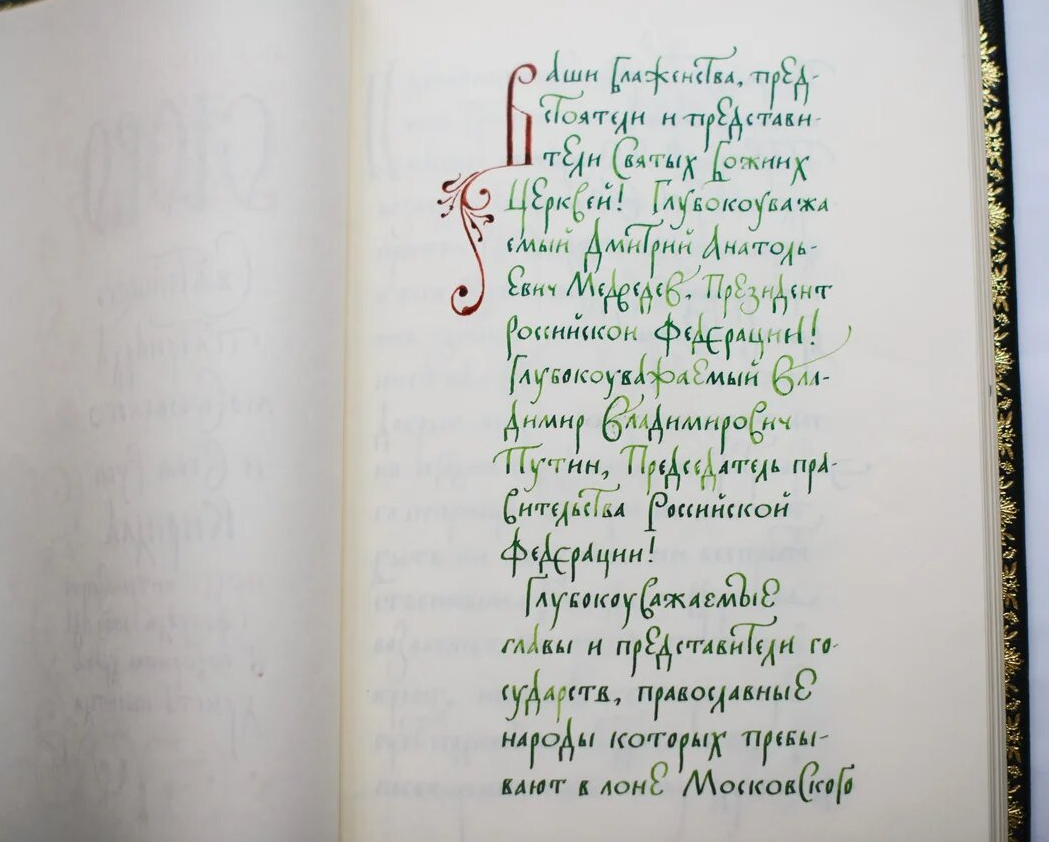 Ваши Блаженства, пред-
стоятели и представи-
тели Святых Божиих
Церквей! Глубокоуважа
емый Дмитрий Анатоль-
евич Медведев, Президент
Российской Федерации!
Глубокоуважаемый Вла-
димир Владимирович
Путин, Председатель пра-
вительства Российской
Федерации!
Глубокоуважаемые
главы и представители го-
сударств, православные
народы которых пребы-
вают в лоне Московского